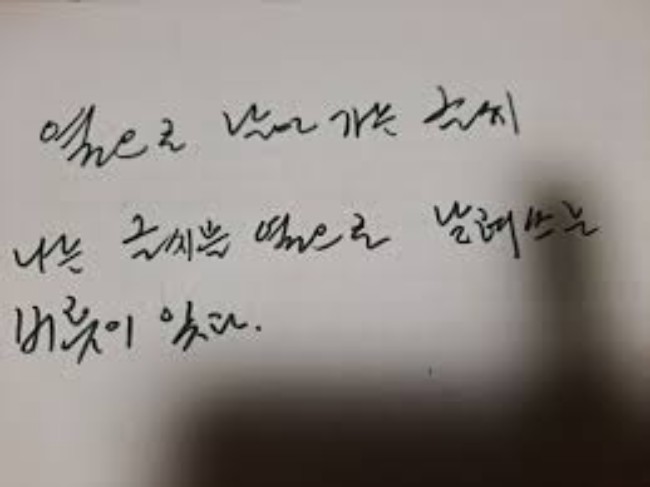 옆으로 날아 가는 글씨
나는 글씨를 옆으로 날려 쓰는
버릇이 있다.